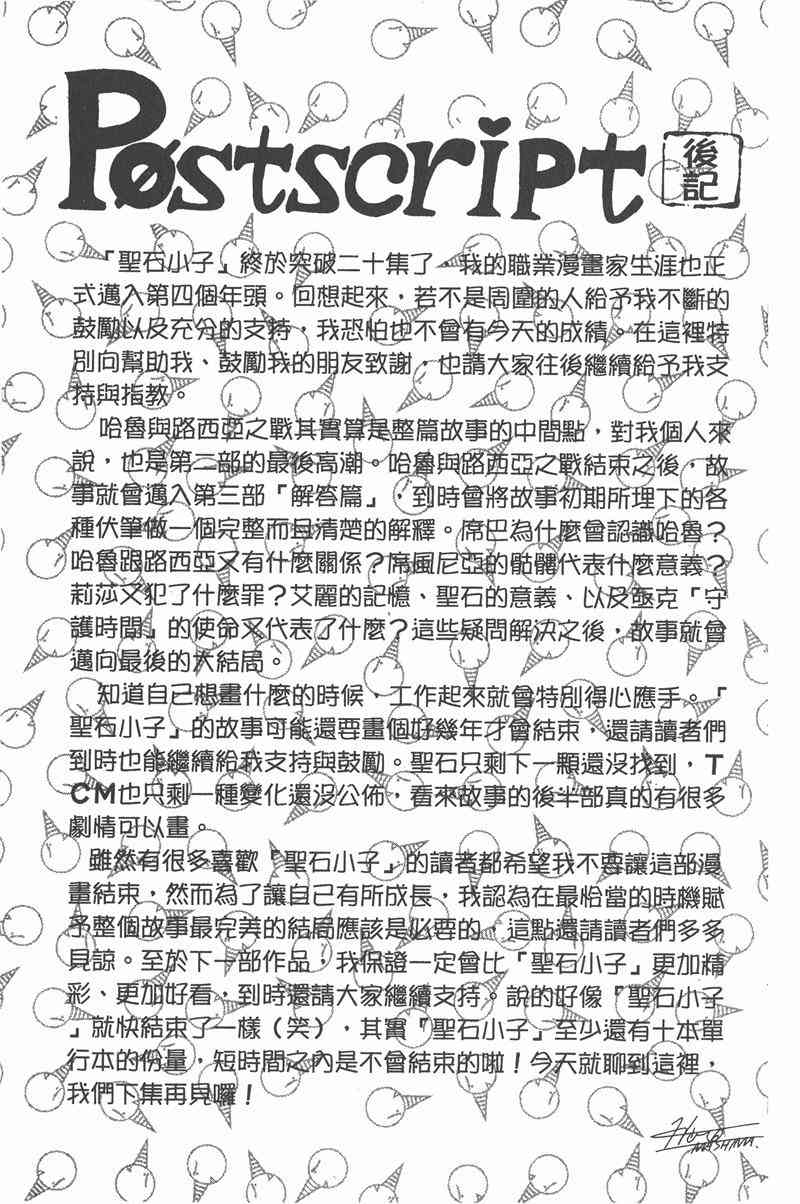 Postscript
後記
「聖石小子」終於突破二十集了，我的職業漫畫家生涯也正
式邁入第四個年頭。回想起來，若不是周圍的人給予我不斷的
鼓勵以及充分的支持，我恐怕也不會有今天的成績。在這裡特
別向幫助我、鼓勵我的朋友致謝，也請大家往後繼續給予我支
持與指教。
哈魯與路西亞之戰其實算是整篇故事的中間點，對我個人來
說，也是第二部的最後高潮。哈魯與路西亞之戰結束之後，故
事就會邁入第三部「解答篇」，到時會將故事初期所埋下的各
種伏筆做一個完整而且清楚的解釋。席巴為什麼會認識哈魯？
哈魯跟路西亞又有什麼關係？席風尼亞的骷髏代表什麼意義？
莉莎又犯了什麼罪？艾麗的記憶、聖石的意義、以及亟克「守
護時間」的使命又代表了什麼？這些疑問解決之後，故事就會
邁向最後的大結局。
知道自己想畫什麼的時候，工作起來就會特別得心應手。「
聖石小子」的故事可能還要畫個好幾年才會結束，還請讀者們
到時也能繼續給我支持與鼓勵。聖石只剩下一顆還沒找到，T
CM也只剩一種變化還沒公佈，看來故事的後半部真的有很多
劇情可以畫。
雖然有很多喜歡「聖石小子」的讀者都希望我不要讓這部漫
畫結束，然而為了讓自己有所成長，我認為在最恰當的時機賦
予整個故事最完美的結局應該是必要的，這點還請讀者們多多
見諒。至於下一部作品，我保證一定會比「聖石小子」更加精
彩、更加好看，到時還請大家繼續支持。說的好像「聖石小子
」就快結束了一樣（笑），其實「聖石小子」至少還有十本單
行本的份量，短時間之內是不會結束的啦！今天就聊到這裡，
我們下集再見囉！
MASHIMA.